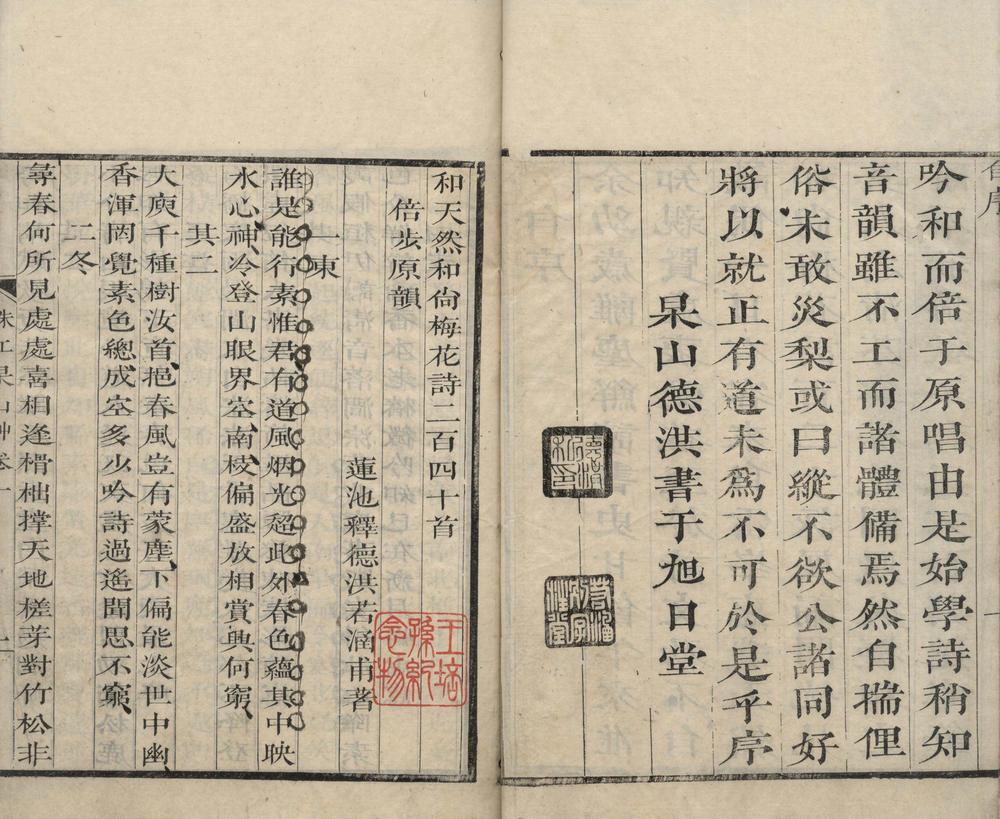 自序
吟和而倍于原唱由是始學詩稍知
音韻雖不工而諸體備焉然自揣俚
俗未敢災梨或曰縱不欲公諸同好
將以就正有道未爲不可於是乎序
杲山德洪書于旭日堂
和天然和尙梅花詩二百四十首
倍步原韻
蓮池釋德洪若涵甫著
一東
誰是能行素惟君有道風烟光超此外春色蘊其中映
水心神冷登山眼界空南枝偏盛放相賞興何窮
其二
大庾千種樹汝首挹春風豈有蒙塵下偏能淡世中幽
香渾罔覺素色總成空多少吟詩過遙聞思不窮
二冬
尋春何所見處處喜相逢榾柮撑天地槎芽對竹松非
王培孫紀念物